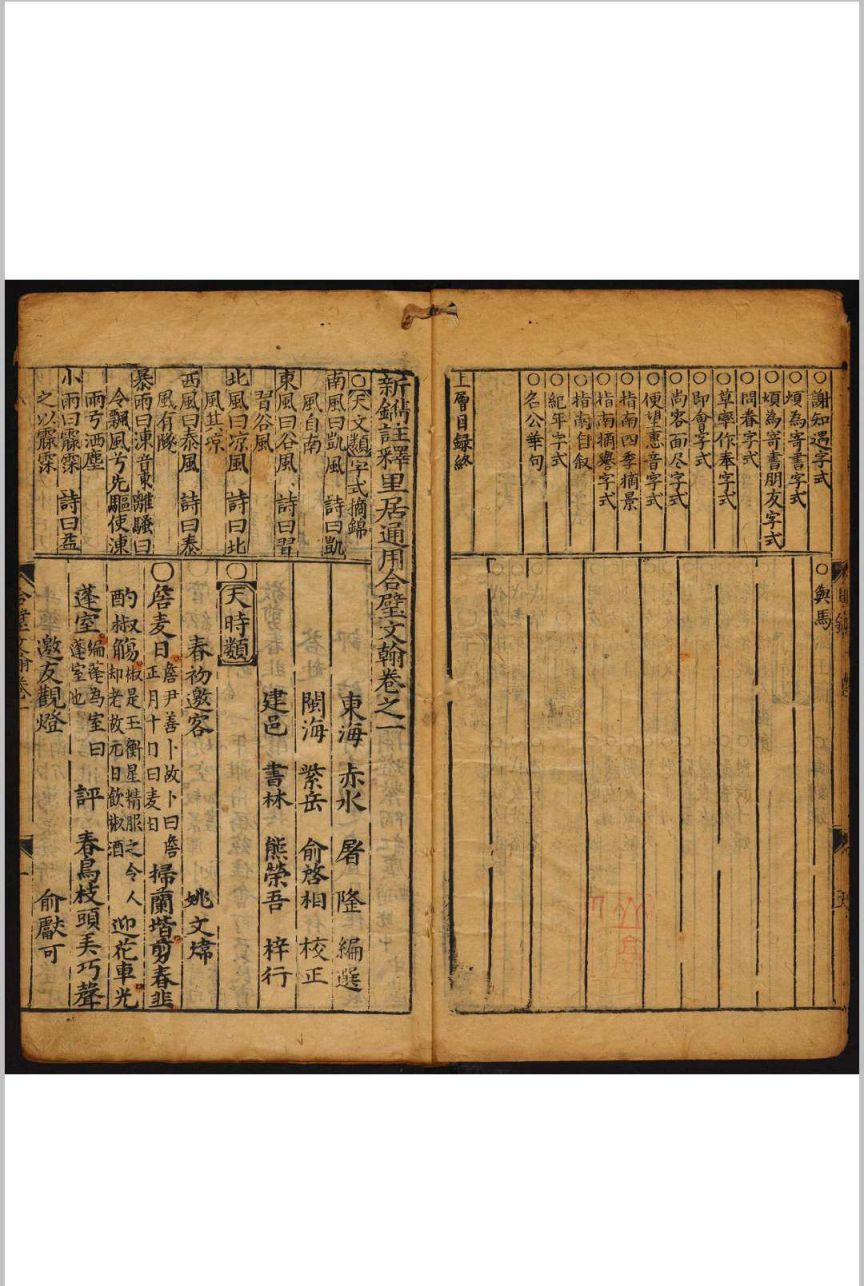 ○謝知遇字式
○煩為寄書字式
○煩為寄書朋友字式
○問春字式
○草率作奉字式
○即會字式
○尚容面尽字式
○便望惠音字式
○指南四季摘景
○指南摘譽字式
○指南自叙
○紀年字式
○名公華句
上層目録終
○輿馬
新鐫註釋里居通用合璧文翰卷之一
○天文類字式摘錦
南風曰凱風 詩曰凱
風自南
東風曰谷風 詩曰習
習谷風
北風曰凉風 詩曰北
風其凉
西風曰泰風 詩曰泰
風有隧
暴雨曰涷音東離騷曰
令飄風兮先驅使涷
雨兮洒塵
小雨曰霢霂 詩曰益
之以霢霂
東海 赤水 屠隆 編選
閩海 紫岳 俞啓相 校正
建邑 書林 熊榮吾 梓行
○天時類
春初邀客 姚文煒
○詹麦日詹尹善卜故卜曰詹正月十日曰麦日掃蘭堦剪春韭
酌椒觴椒是玉衡星精服之令人却老故元日飲椒酒迎花車光
蓬室編蓬為室曰蓬室也 評 春鳥枝頭美巧聲
邀友觀燈 俞獻可